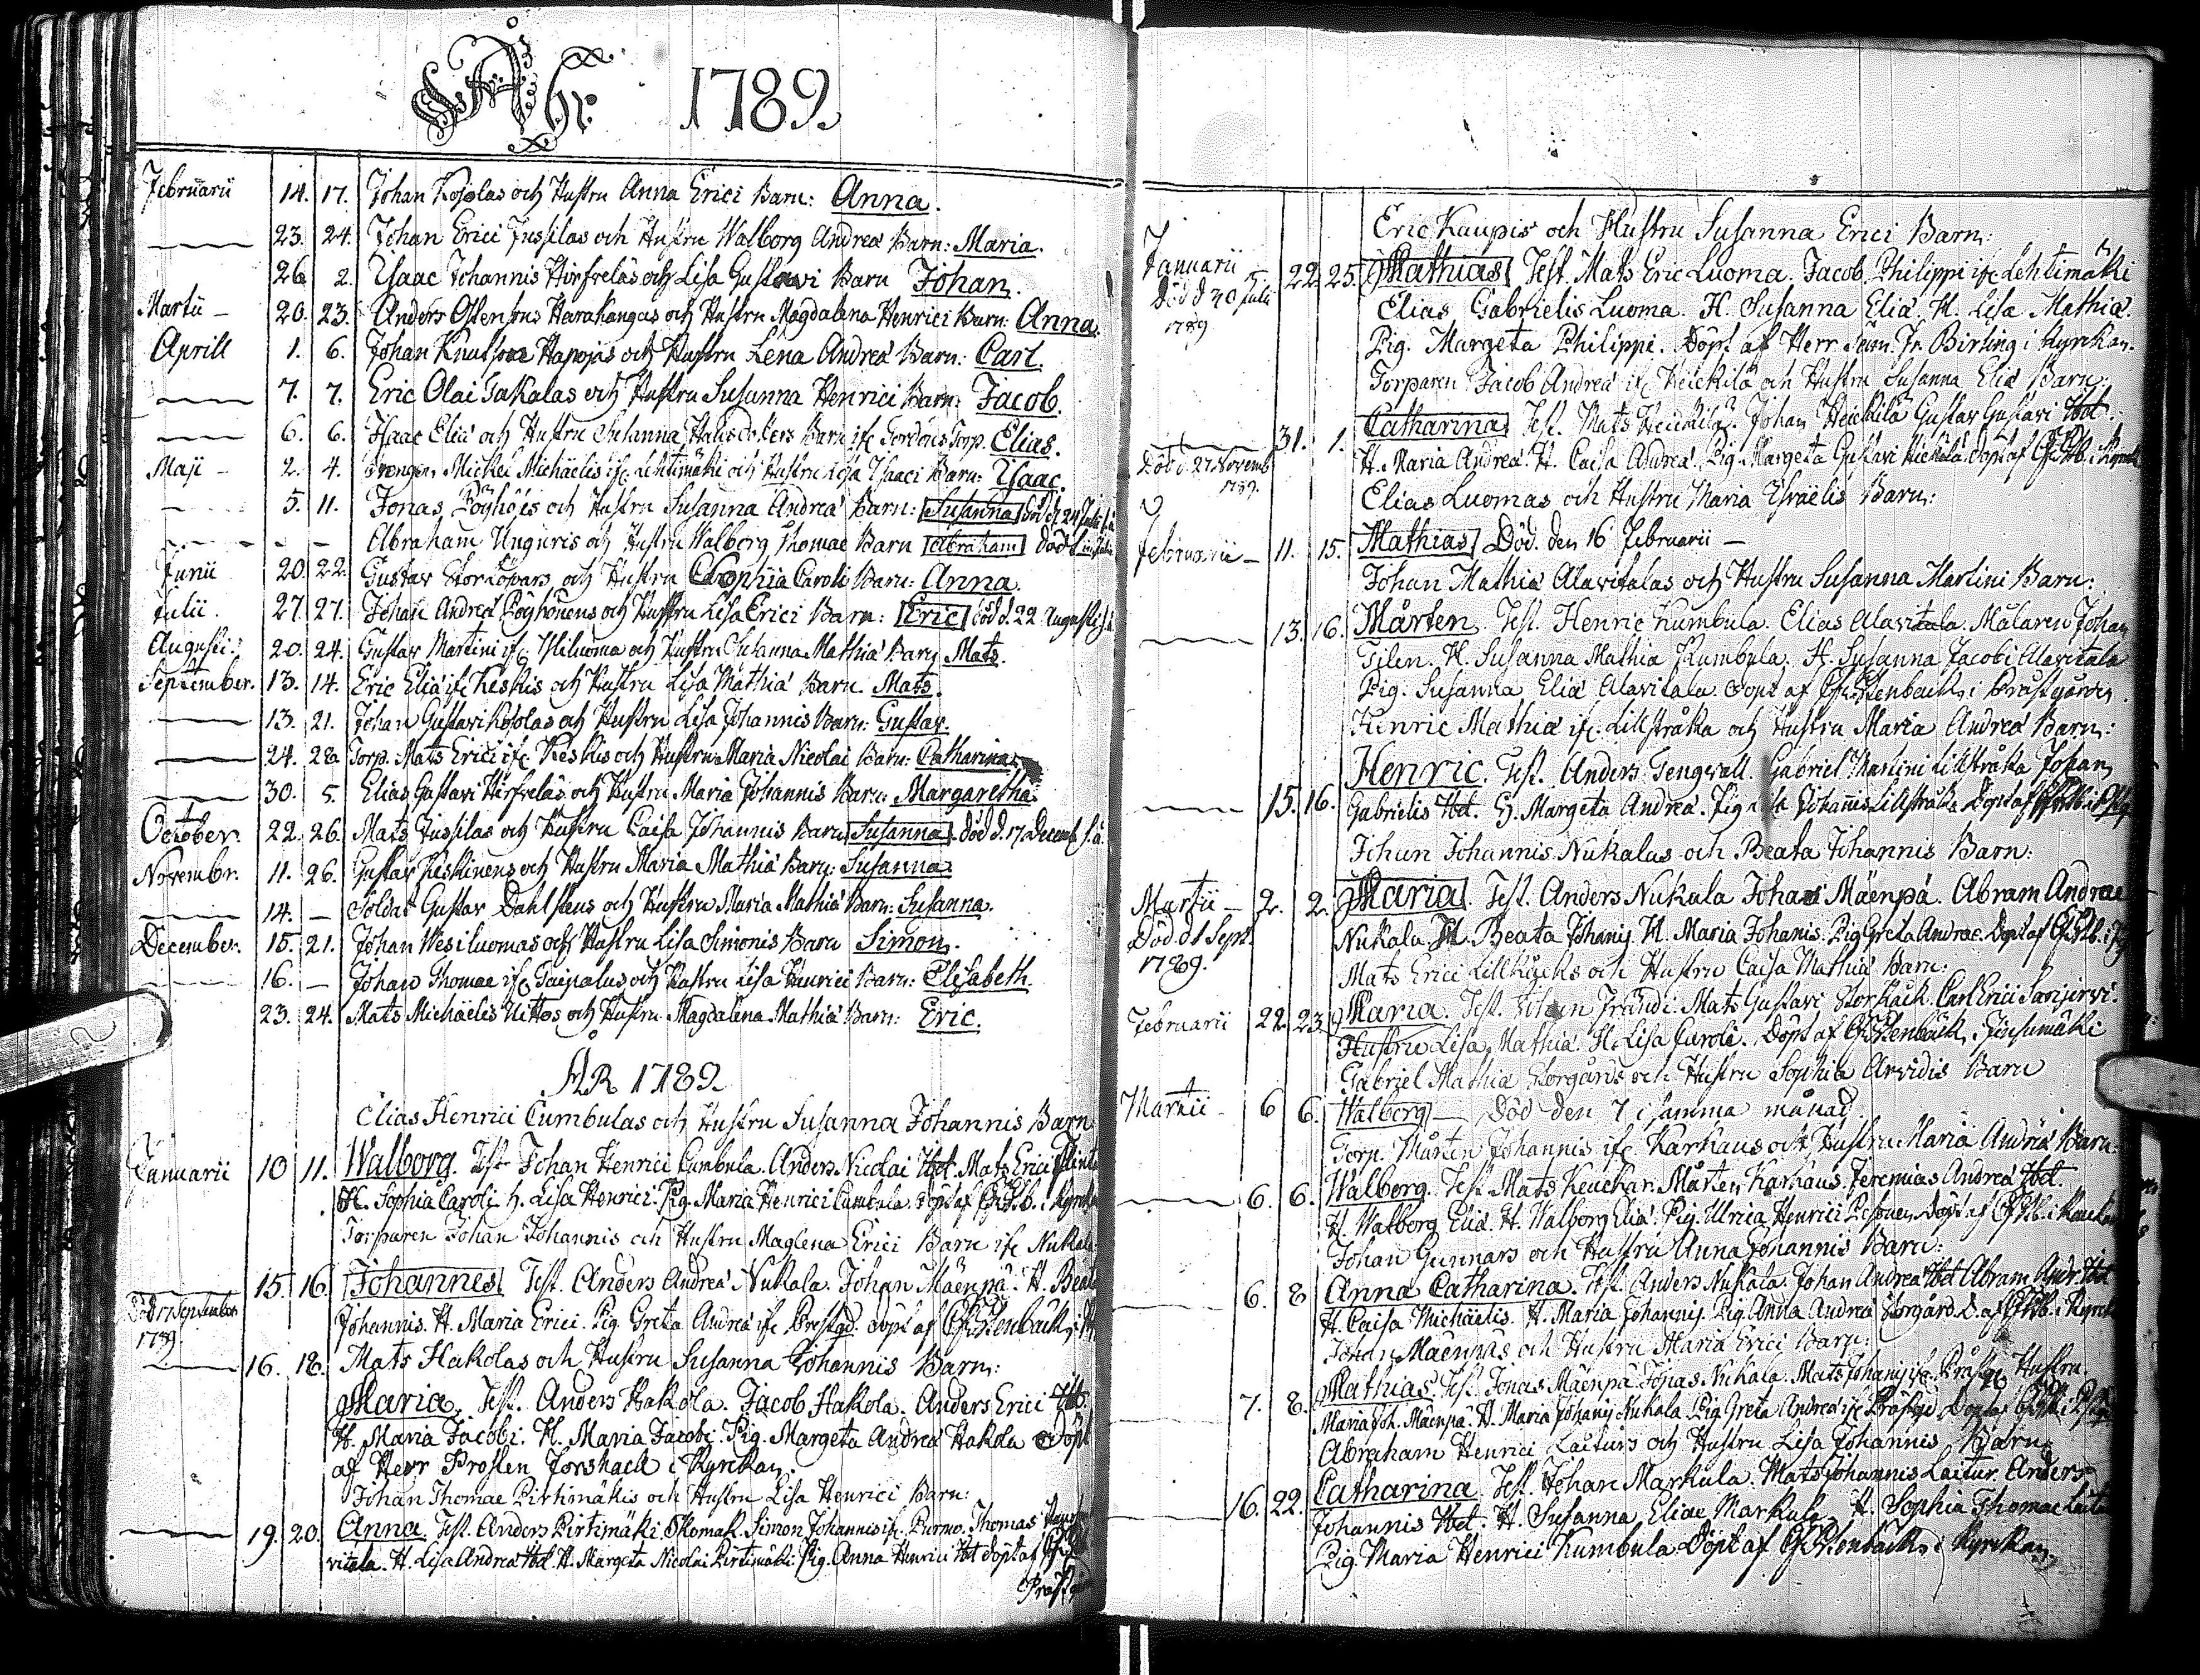 Åhr 1789.
Februarii 14. 17. Johan Kojolas och Hustru Anna Erici Barn: Anna.
23. 24. Johan Erici Jussilas och Hustru Walborg Andreæ Barn: Maria.
26 2. Isaac Johannis Hirfrelas och Lisa Gustavi Barn Johan.
Martii - 20. 23. Anders Harakangas och Hustru Magdalena Henrici Barn: Anna.
Aprill 1. 6. Johan Knutsons Hapojas och Hustru Lena Andreæ Barn: Carl.
7. 7. Eric Olai Sakalas och Hustru Susanna Henrici Barn: Jacob.
6. 6. Isaac Eliæ och Hustru Susanna Barn ifr. Torp. Elias.
Maji - 2. 4. Drengen Mickel Michaëlis ifr. Lehtimäki och Hustru Lisa Isaaci Barn: Isaac.
5. 11. Jonas Pöyhöis och Hustru Susanna Andreæ Barn: Susanna död d. 24 Julii
- - - Abraham Unguris och Hustru Walborg Thomae Barn Abraham död
Junii 20. 22. Gustav Storlöpars och Hustru Sophia Caroli Barn: Anna.
Julii. 27. 27. Johan Andreæ Pöyhönens och Hustru Lisa Erici Barn: Eric död d. 22. Augusti
Augusti: 20. 24. Gustav Martini ifr. Yliluoma och Hustru Susanna Mathiæ Barn Mats.
September. 13. 14. Eric Eliæ ifr Keskis och Hustru Lisa Mathiæ Barn. Mats.
13. 21. Johan Gustavi Kojolas och Hustru Lisa Johannis Barn: Gustav.
24. 28 Torp. Mats Erici ifr. Keskis och Hustru Maria Nicolai Barn: Catharina
30. 5. Elias Gustavi Hirfrelas och Hustru Maria Johannis Barn: Margaretha
October. 22. 26. Mats Jussilas och Hustru Caisa Johannis Barn Susanna död d. 17 Decemb. s.å.
Novembr. 11. 26. Gustav Keskinens och Hustru Maria Mathiæ Barn: Susanna
14. - Soldat Gustav Dahlstens och Hustru Maria Mathiæ Barn: Susanna.
December. 15. 21. Johan Wesiluomas och Hustru Lisa Simonis Barn Simon.
16. - Johan Thomae ifr. Taipalus och Hustru Lisa Henrici Barn: Elisabeth
23. 24. Mats Michäelis Uittos och Hustru Magdalena Mathiæ Barn: Eric.
ÅR 1789
Elias Henrici Cumbulas och Hustru Susanna Johannis Barn
Januarii 10 11. Walborg. Test Johan Henrici Cumbula. Anders Nicolai Ibd. Mats Erici
H. Sophia Caroli. H. Lisa Henrici. Pig. Maria Henrici Cumbula. Döpt af i Kyrkan
Torparen Johan Johannis och Hustru Maglena Erici Barn ifr Nukala
15. 16. Johannes Test. Anders Andreæ Nukala. Johan Mäenpä. H. Beata
Död 17 September
1789
Johannis. H. Maria Erici. Pig. Greta Andreæ ifr Prestgd. döpt af Stenbäck
16. 18. Mats Hakolas och Hustru Susanna Johannis Barn:
Maria. Test. Anders Hakola. Jacob Hakola. Anders Erici Ibd
H. Maria Jacobi. H. Maria Jacobi. Pig. Margeta Andreæ Hakola Döpt
af Herr Prosten Forsbaeck i Kyrkan.
Johan Thomae Pirtimäkis och Hustru Lisa Henrici Barn:
19. 20. Anna. Test. Anders Pirtimäki. Simon Johannis ifr. Purmo. Thomas
vitala. H. Lisa Andreæ Ibd. H. Margeta Nicolai Pirtimäki. Pig. Anna Henrici Ibd döpt af
Eric Kaupis och Hustru Susanna Erici Barn:
Januarii 22. 25. Mathias Test. Mats Eric Luoma. Jacob Philippi ifr Lehtimäki
Död d 20 Julii
1789
Elias Gabrielis Luoma. H. Susanna Eliæ. H. Lisa Mathiæ.
Pig. Margeta Philippi. Döpt af Herr Birling i Kyrkan.
Torparen Jacob Andreæ ifr Heickilä och Hustru Susanna Eliæ Barn:
31. 1. Catharina Test. Mats Heickilä. Johan Heickilä Gustav Gustavi Ibd.
Död d. 27 Novemb
1789.
H. Maria Andreæ. H. Caisa Andreæ. Pig. Margeta Gustavi Heickilä döpt af i Kyrkan
Elias Luomas och Hustru Maria Israëlis Barn:
Februarii - 11. 15. Mathias Död. den 16 Februarii -
Johan Mathiæ Alavitalas och Hustru Susanna Martini Barn:
13. 16. Mårten. Test. Henric Kumbula. Elias Alavitala. Målaren Johan
Tilen. H. Susanna Mathiæ Kumbula. H. Susanna Jacobi Alavitala
Pig. Susanna Eliæ Alavitala. Döpt af Stenbäck i Prästgården.
Henric Mathiæ ifr. Lillstråka och Hustru Maria Andreæ Barn:
Henric. Test. Anders Tengwall. Gabriel Martini Lillstråka Johan
15. 16. Gabrielis Ibd. H. Margeta Andreæ. Pig. Lisa Johannis Lillstråka Döpt af
Johan Johannis Nukalas och Beata Johannis Barn:
Martii - 2. 2. Maria. Test. Anders Nukala Johan Mäenpä. Abram Andreae
Död d 1 Sept.
1789.
Nukala. H. Beata Johanis. H. Maria Johanis. Pig Greta Andreae. Döpt af
Mats Erici Lillkäcks och Hustru Caisa Mathiæ Barn:
Februarii 22. 23. Maria. Test. Johan Mats Gustavi Storkäck. Carl Erici Sarijervi.
Hustru Lisa Mathiæ. H. Lisa Caroli. Döpt af Stenbäck,
Gabriel Mathiæ Storgårds och Hustru Sophia Arvidis Barn
Martii - 6 6. Walborg - Död den 7 i samma månad.
Torp. Mårten Johannis ifr. Karhaus och Hustru Maria Andreæ Barn:
6. 6. Walborg. Test. Mats Keuchar. Mårten Karhaus. Jeremias Andreæ Ibd.
H. Walborg Eliæ. H. Walborg Eliæ. Pig. Ulrica Henrici Döpt af
Johan Gunnars och Hustru Anna Johannis Barn:
6. 8 Anna Catharina. Test. Anders Nukala. Johan Andreæ Ibd Abram Andr. Ibd
H. Caisa Michäelis. H. Maria Johannis. Pig. Anna Andreæ Storgård. D. af i Kyrkan
Johan Mäenpäs och Hustru Maria Erici Barn:
7. 8. Mathias. Test. Jonas Mäenpä Jonas Nukala. Mats Johanis ifr. Hustru
Maria Joh. Mäenpä. H. Maria Johanis Nukala. Pig. Greta Andreæ ifr Prästgd Döpt af
Abraham Henrici Laiturs och Hustru Lisa Johannis Barn:
16. 22. Catharina. Test. Johan Markula. Mats Johannis Laitur. Anders
Johannis Ibd. H. Susanna Eliae Markula. H. Sophia Thomae
Pig Maria Henrici Kumbula. Döpt af Stenbäck, i Kyrkan.